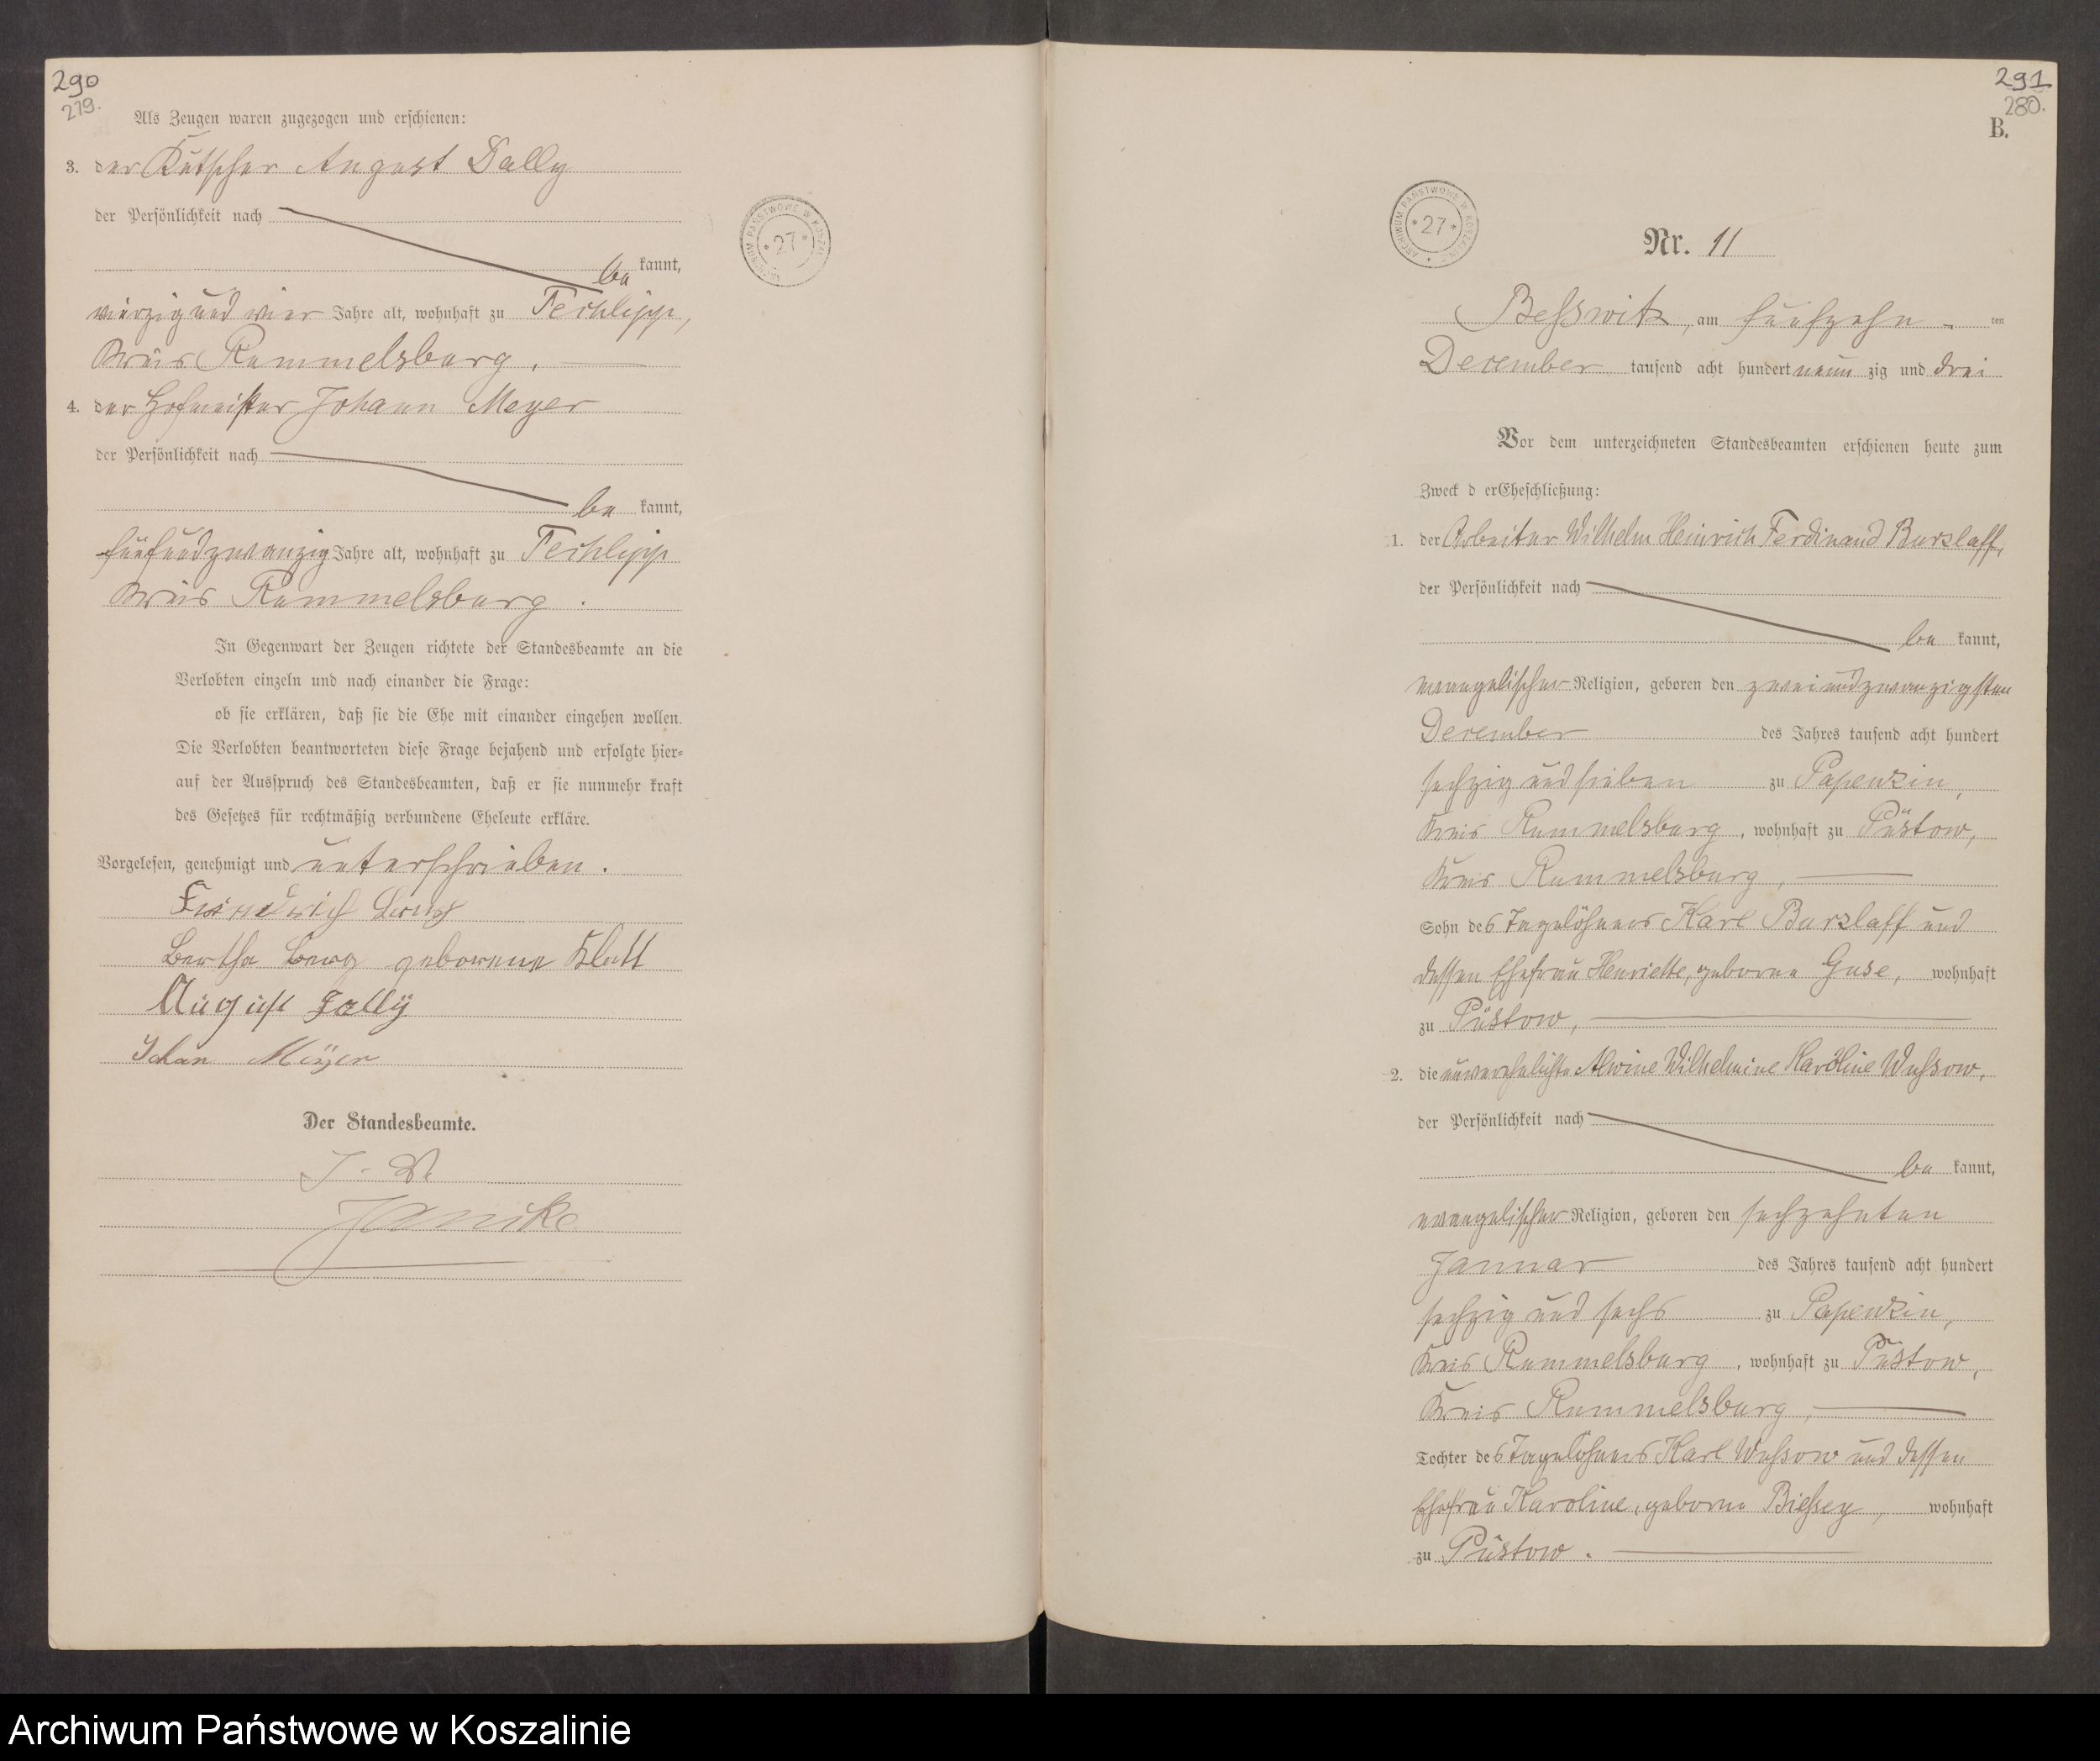 290
279.
Als Zeugen waren zugezogen und erschienen:
3. der Kutscher August Dally
der Persönlichkeit nach
be kannt,
vierzig und vier Jahre alt, wohnhaft zu Techlipp,
Kreis Rummelsburg.
4. der Hofmeister Johann Meyer
der Persönlichkeit nach
be kannt,
fünfundzwanzig Jahre alt, wohnhaft zu Techlipp
Kreis Rummelsburg.
In Gegenwart der Zeugen richtete der Standesbeamte an die
Verlobten einzeln und nach einander die Frage:
ob sie erklären, daß sie die Ehe mit einander eingehen wollen.
Die Verlobten beantworteten diese Frage bejahend und erfolgte hier=
auf der Ausspruch des Standesbeamten, daß er sie nunmehr kraft
des Gesetzes für rechtmäßig verbundene Eheleute erkläre.
Vorgelesen, genehmigt und unterschrieben.
Friedrich
Bertha geborene Klatt
August Dally
Johan Meyer
Der Standesbeamte.
J. V.
ARCHIWUM PAŃSTWOWE W KOSZALINIE
* 27 *
291
280.
B.
ARCHIWUM PAŃSTWOWE W KOSZALINIE
* 27 *
Nr. 11
Beßwitz, am fünfzehn ten
December tausend acht hundert neun zig und drei
Vor dem unterzeichneten Standesbeamten erschienen heute zum
Zweck d er Eheschließung:
1. der Arbeiter Wilhelm Heinrich Ferdinand Burzlaff,
der Persönlichkeit nach
be kannt,
evangelischer Religion, geboren den zweiundzwanzigsten
December des Jahres tausend acht hundert
sechzig und sieben zu Papenzin,
Kreis Rummelsburg, wohnhaft zu Püstow,
Kreis Rummelsburg,
Sohn des Tagelöhners Karl Burzlaff und
dessen Ehefrau Henriette, geborne Guse, wohnhaft
zu Püstow,
2. die unverehelichte Alwine Wilhelmine Karoline Wußow,
der Persönlichkeit nach
be kannt,
evangelischer Religion, geboren den sechzehnten
Januar des Jahres tausend acht hundert
sechzig und sechs zu Papenzin,
Kreis Rummelsburg, wohnhaft zu Püstow,
Kreis Rummelsburg,
Tochter des Tagelöhners Karl Wußow und dessen
Ehefrau Karoline, geborne Bießey, wohnhaft
zu Püstow.
Archiwum Państwowe w Koszalinie